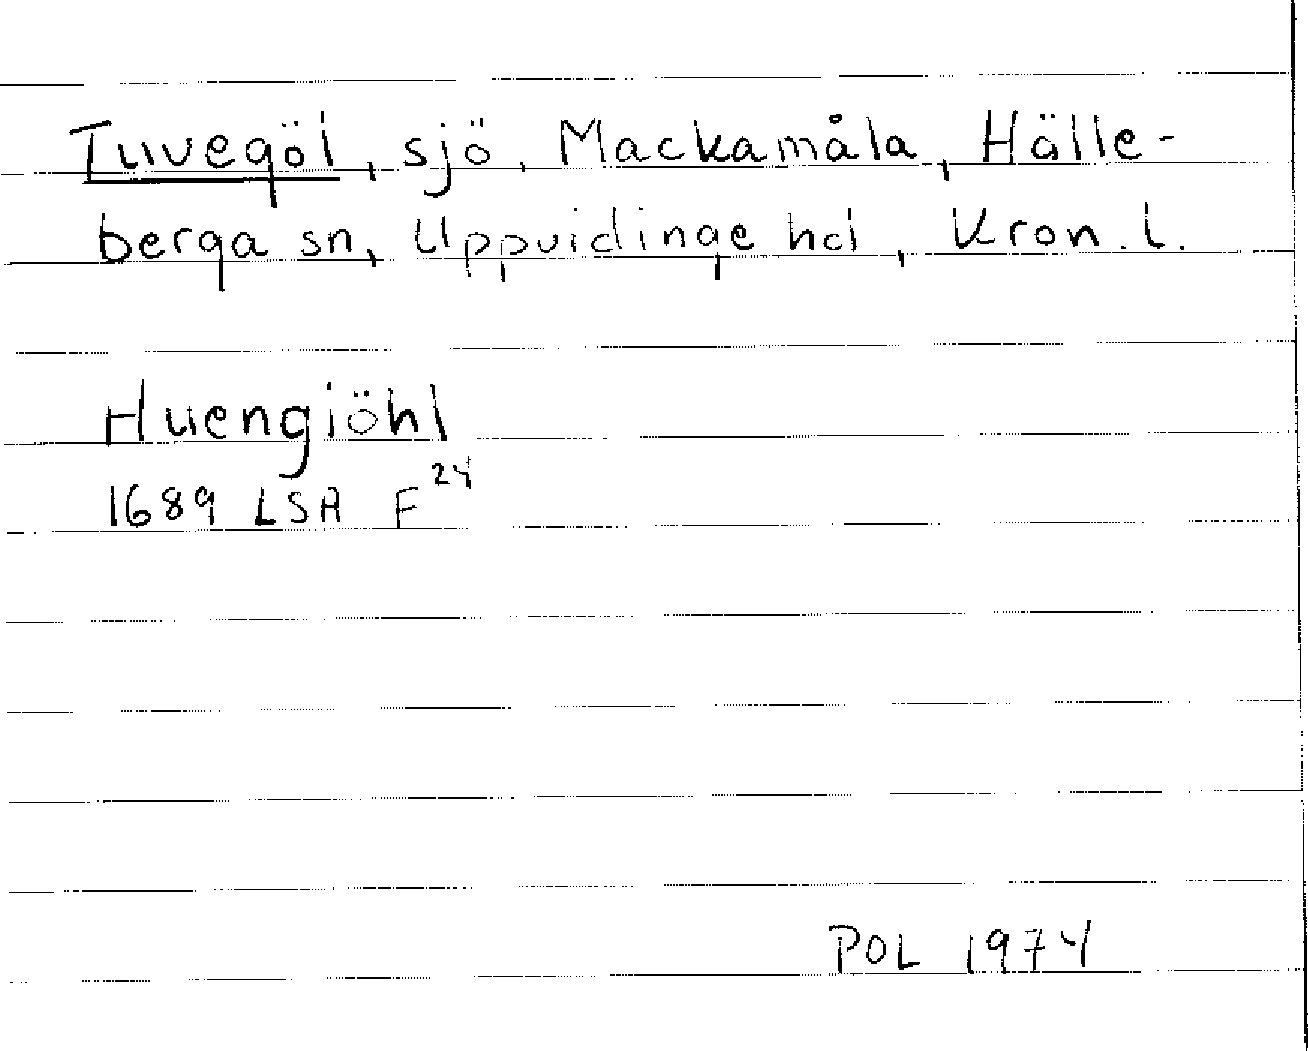 Tuvegöl, sjö, Mackamåla, Hälle-
berga sn, Uppvidinge hd, Kron. l.
Huengiöhl
1689 LSA F 24
POL 1974